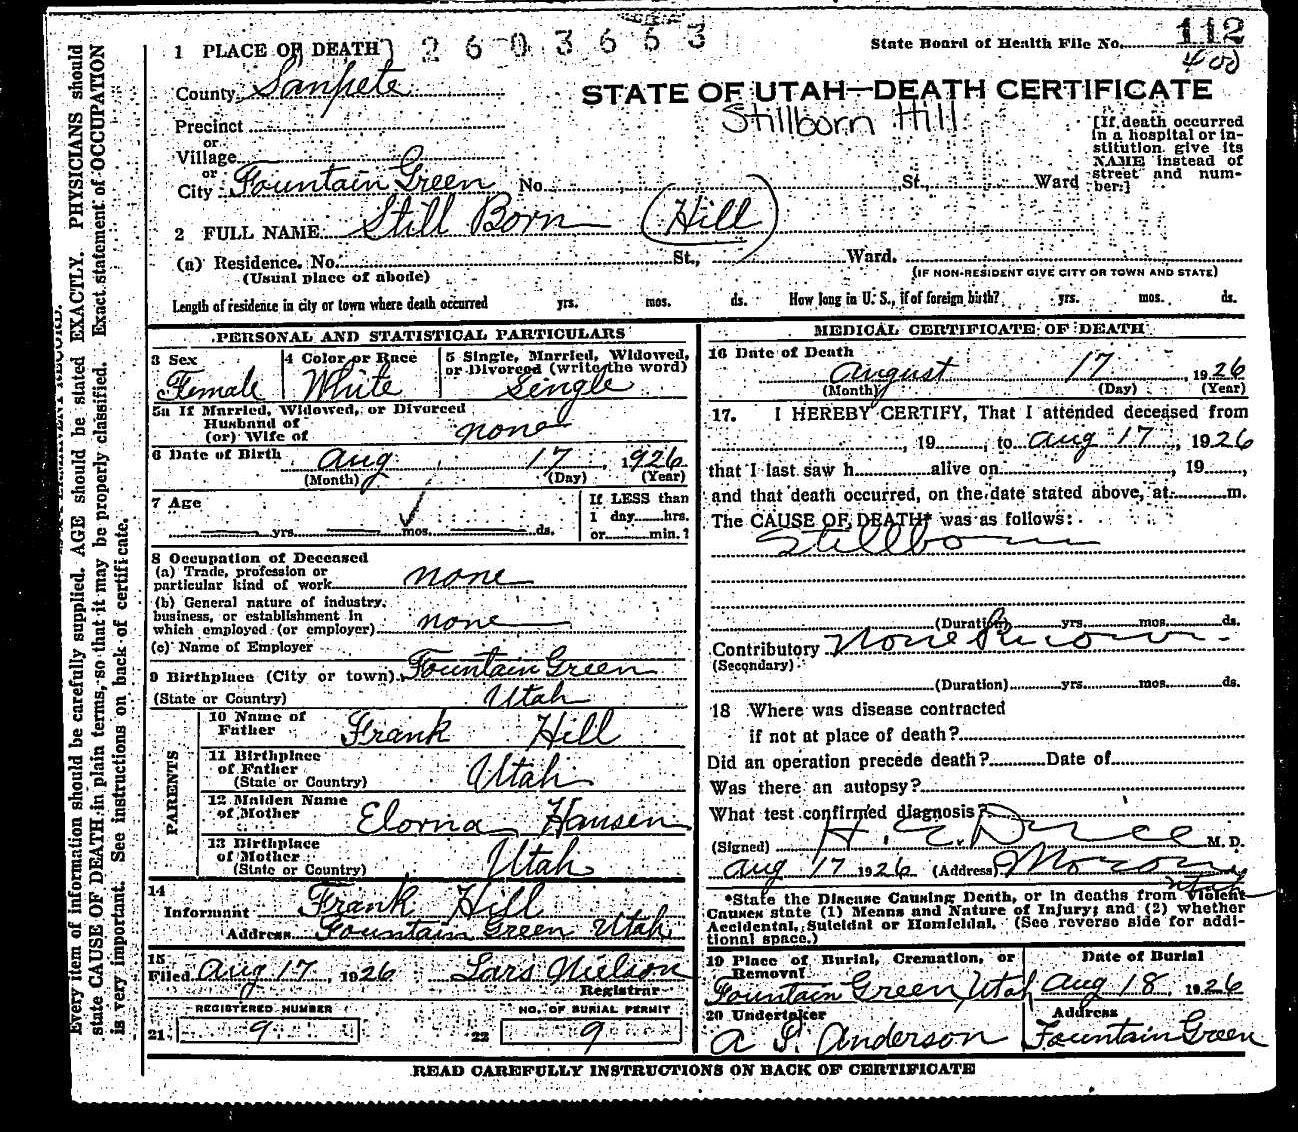 1 PLACE OF DEATH 2603663
State Board of Health File No. 112
400
County Sanpete
STATE OF UTAH—DEATH CERTIFICATE
Stillborn Hill
Precinct
or
Village
or
City Fountain Green No. St., Ward
[If death occurred
in a hospital or in-
stitution give its
NAME instead of
street and num-
ber.]
2 FULL NAME Still Born (Hill)
(a) Residence. No. St., Ward.
(Usual place of abode) (IF NON-RESIDENT GIVE CITY OR TOWN AND STATE)
Length of residence in city or town where death occurred yrs. mos. ds. How long in U. S., if of foreign birth? yrs. mos. ds.
PERSONAL AND STATISTICAL PARTICULARS
3 Sex
Female
4 Color or Race
White
5 Single, Married, Widowed,
or Divorced (write the word)
Single
5a If Married, Widowed, or Divorced
Husband of
(or) Wife of none
6 Date of Birth Aug 17, 1926
(Month) (Day) (Year)
7 Age
yrs. mos. ds.
If LESS than
1 day hrs.
or min.?
8 Occupation of Deceased
(a) Trade, profession or
particular kind of work none
(b) General nature of industry,
business, or establishment in
which employed (or employer) none
(c) Name of Employer
9 Birthplace (City or town) Fountain Green
(State or Country) Utah
PARENTS
10 Name of
Father Frank Hill
11 Birthplace
of Father
(State or Country) Utah
12 Maiden Name
of Mother Elorna Hansen
13 Birthplace
of Mother
(State or Country) Utah
14
Informant Frank Hill
Address Fountain Green Utah
15
Filed Aug 17, 1926 Lars Nielson
Registrar
REGISTERED NUMBER
21. 9
NO. OF BURIAL PERMIT
22 9
MEDICAL CERTIFICATE OF DEATH
16 Date of Death
August 17 1926
(Month) (Day) (Year)
17. I HEREBY CERTIFY, That I attended deceased from
, 19 , to Aug 17, 1926
that I last saw h alive on , 19 ,
and that death occurred, on the date stated above, at m.
The CAUSE OF DEATH* was as follows:
Stillborn
(Duration) yrs. mos. ds.
Contributory None
(Secondary)
(Duration) yrs. mos. ds.
18 Where was disease contracted
if not at place of death?
Did an operation precede death? Date of
Was there an autopsy?
What test confirmed diagnosis?
(Signed) H. C. M. D.
Aug 17 1926 (Address) Moroni
Utah
*State the Disease Causing Death, or in deaths from Violent
Causes state (1) Means and Nature of Injury; and (2) whether
Accidental, Suicidal or Homicidal. (See reverse side for addi-
tional space.)
19 Place of Burial, Cremation, or
Removal
Fountain Green, Utah
Date of Burial
Aug 18, 1926
20 Undertaker
Anderson
Address
Fountain Green
READ CAREFULLY INSTRUCTIONS ON BACK OF CERTIFICATE
PERMANENT RECORD.
Every item of information should be carefully supplied. AGE should be stated EXACTLY. PHYSICIANS should
state CAUSE OF DEATH in plain terms, so that it may be properly classified. Exact statement of OCCUPATION
is very important. See instructions on back of certificate.